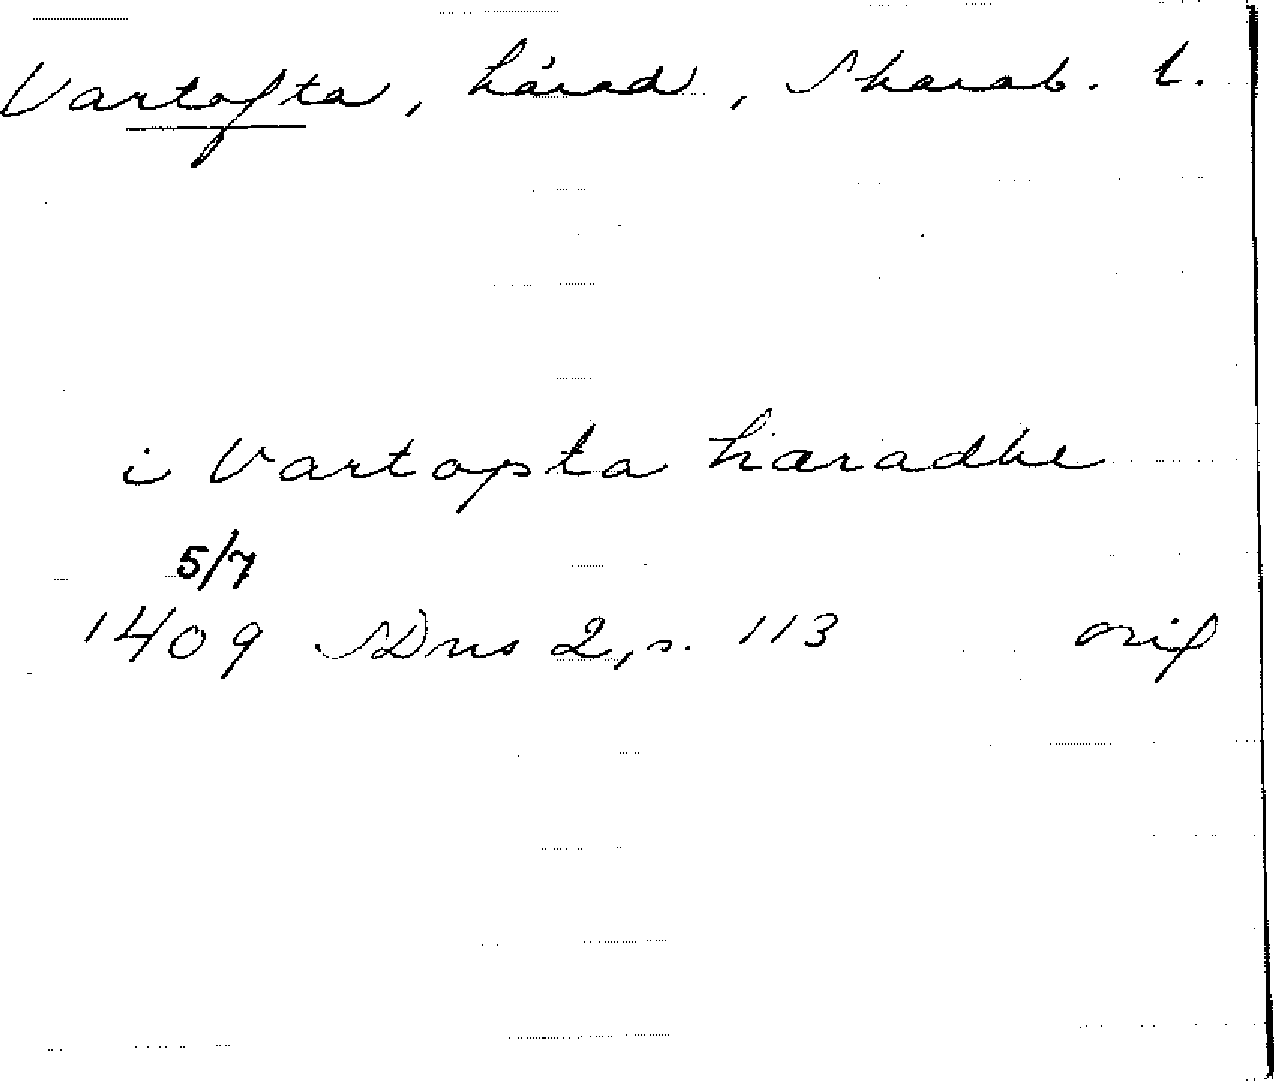 Vartofta, härad, Skarab. l.
i Vartopta hæradhe
5/7
1409 SDns 2, s. 113 orig